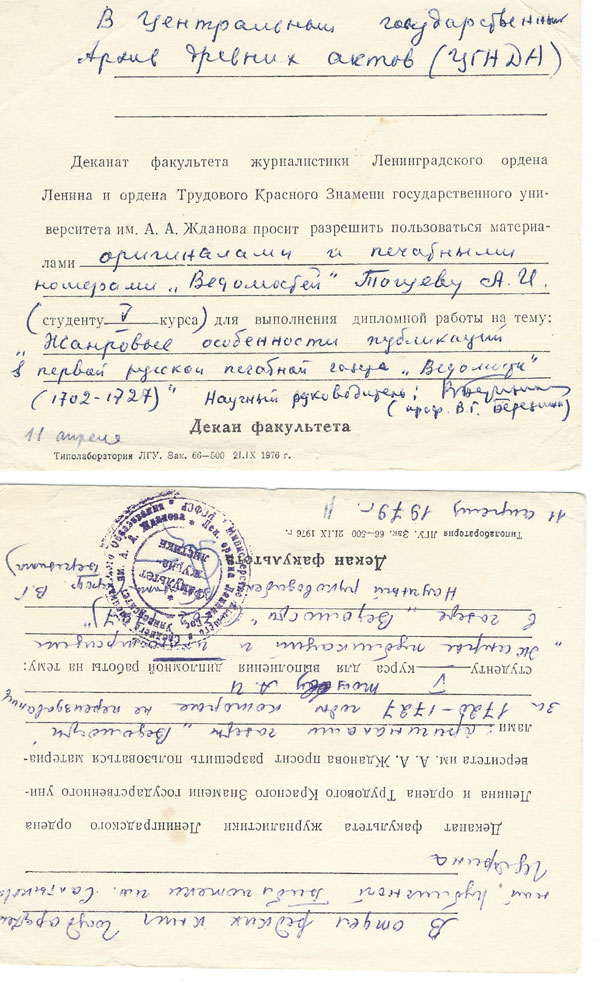 В Центральный государственный
Архив древних актов (ЦГНДА)
Деканат факультета журналистики Ленинградского ордена
Ленина и ордена Трудового Красного Знамени государственного уни-
верситета им. А. А. Жданова просит разрешить пользоваться материа-
лами оригиналами и печатными
номерами „Ведомостей" А. И.
(студенту V курса) для выполнения дипломной работы на тему:
„Жанровые особенности публикаций
в первой русской печатной газете „Ведомости"
(1702-1727)" Научный руководитель:
(проф. В. Г. Березина)
Декан факультета
11 апреля
Типолаборатория ЛГУ. Зак. 66—500 21.IX 1976 г.
В отдел редких книг Государствен
ной Публичной библиотеки им. Салтыкова
Щедрина
Деканат факультета журналистики Ленинградского ордена
Ленина и ордена Трудового Красного Знамени государственного уни-
верситета им. А. А. Жданова просит разрешить пользоваться материа-
лами: оригиналами газеты „Ведомости"
за 1728-1727 годы которые не переиздавались
А. И
студенту V курса для выполнения дипломной работы на тему:
„Жанры публикаций и
в газете „Ведомости"
Научный руководитель проф. В. Г. Березина)
Декан факультета
Типолаборатория ЛГУ. Зак. 66—500 21.IX 1976 г.
11 апреля 1979 г.
Факультет
журна-
листики